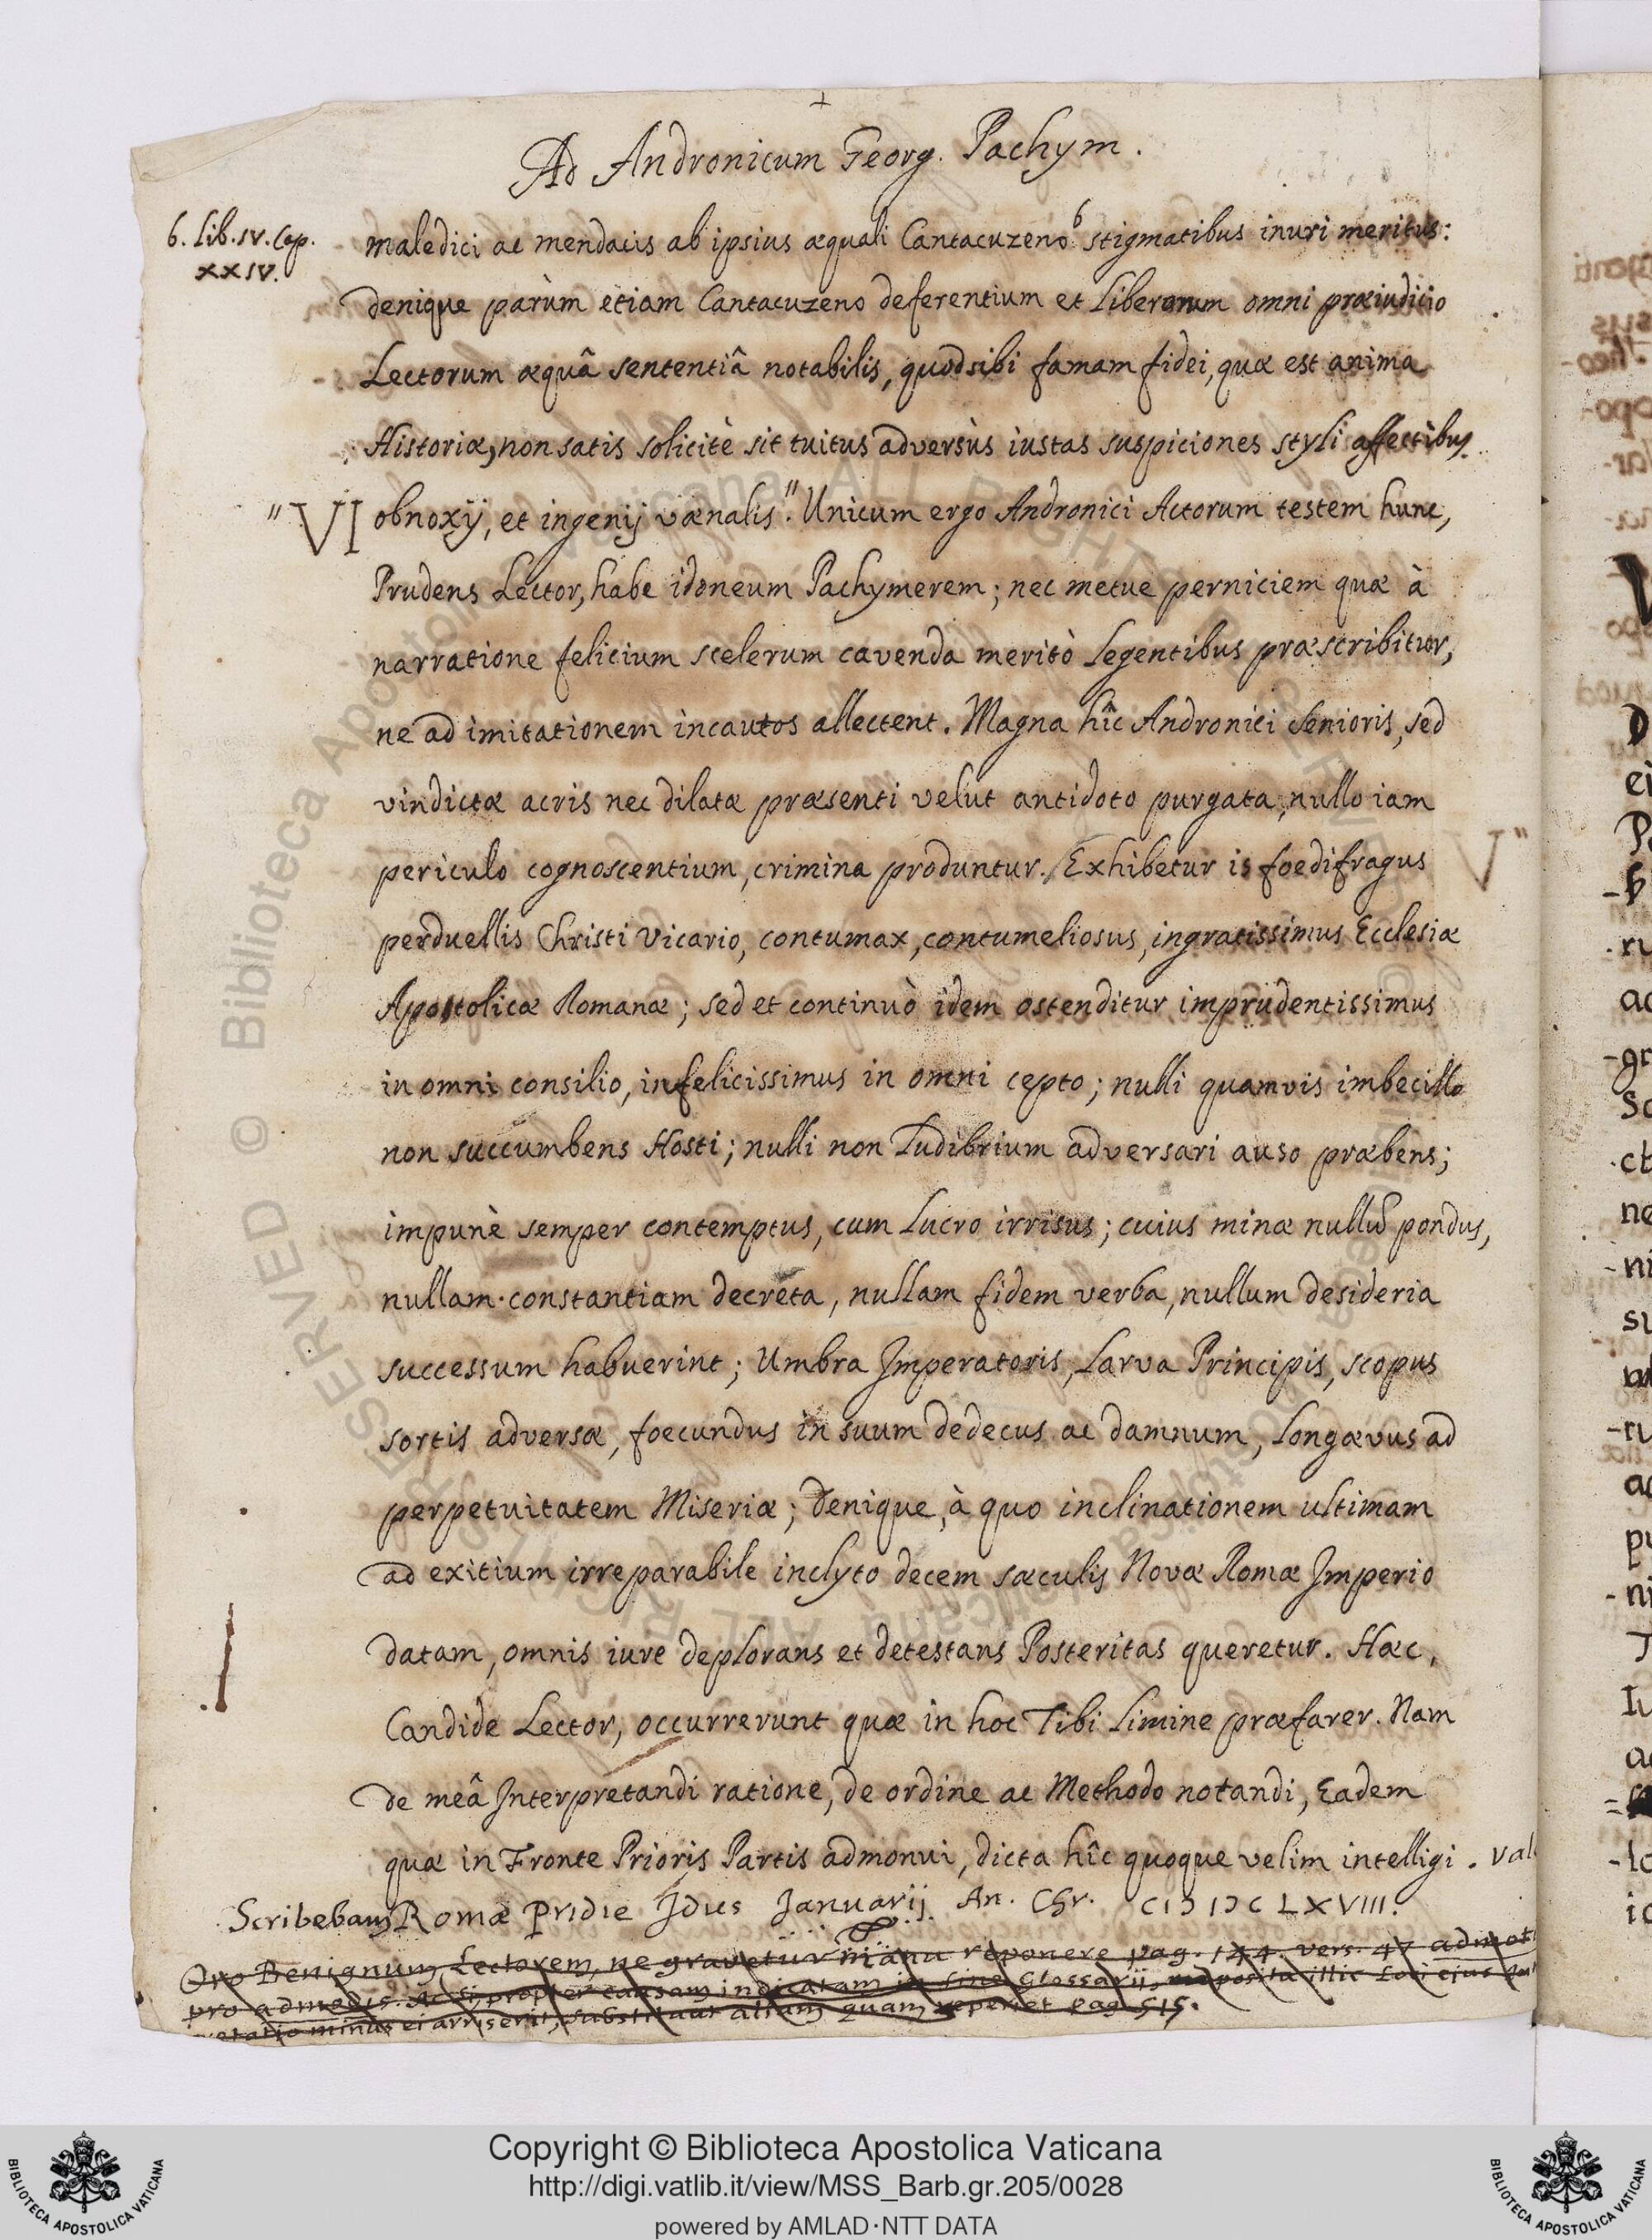 Ad Andronicum Georg. Pachym.
6. Lib. IV. Cap.
XXIV.
maledici ac mendacis ab ipsius æquali Cantacuzeno 6 stigmatibus inuri meritus:
denique parùm etiam Cantacuzeno deferentium et liberorum omni præiudicio
Lectorum æquâ sententiâ notabilis, quod sibi famam fidei, quæ est anima
Historiæ, non satis solicitè sit tuitus adversùs iustas suspiciones styli affectibus
" VI obnoxij, et ingenij vænalis". Unicum ergo Andronici Actorum testem hunc,
Prudens Lector, habe idoneum Pachymerem; nec metue perniciem quæ à
narratione felicium scelerum cavenda meritò legentibus præscribitur,
ne ad imitationem incautos allectent. Magna hîc Andronici Senioris, sed
vindictæ acris nec dilatæ præsenti velut antidoto purgata, nullo iam
periculo cognoscentium, crimina produntur. / Exhibetur is foedifragus V"
perduellis Christi Vicario, contumax, contumeliosus, ingratissimus Ecclesiæ
Apostolicæ Romanæ; sed et continuò idem ostenditur imprudentissimus
in omni consilio, infelicissimus in omni cepto; nulli quamvis imbecillo
non succumbens Hosti; nulli non Ludibrium adversari auso præbens;
impunè semper contemptus, cum lucro irrisus; cuius minæ nullũ pondus,
nullam constantiam decreta, nullam fidem verba, nullum desideria
successum habuerint; Umbra Imperatoris, Larva Principis, scopus
sortis adversæ, foecundus in suum dedecus ac damnum, longævus ad
perpetuitatem Miseriæ; denique, à quo inclinationem ultimam
ad exitium irreparabile inclyto decem sæculis Novæ Romæ Imperio
datam, omnis iure deplorans et detestans Posteritas queretur. Hæc,
Candide Lector, occurrerunt quæ in hoc Tibi limine præfarer. Nam
de meâ Interpretandi ratione, de ordine ac Methodo notandi, Eadem
quæ in Fronte Prioris Partis admonui, dicta hîc quoque velim intelligi. Val
Scribebam Romæ Pridie Idus Januarij An. Chr. CIƆ IƆC LXVIII.
Oro Benignum Lectorem, ne gravetur manu reponere pag. 144. vers. 47 admot
pro admodis. Ac si, propter causam indicatam in fine Glossarij, posita illic Loci ejus
minus ei arriserit, substituat aliam quam reperiet pag. 515.
Copyright © Biblioteca Apostolica Vaticana
http://digi.vatlib.it/view/MSS_Barb.gr.205/0028
powered by AMLAD·NTT DATA
BIBLIOTECA APOSTOLICA VATICANA
BIBLIOTECA APOSTOLICA VATICANA